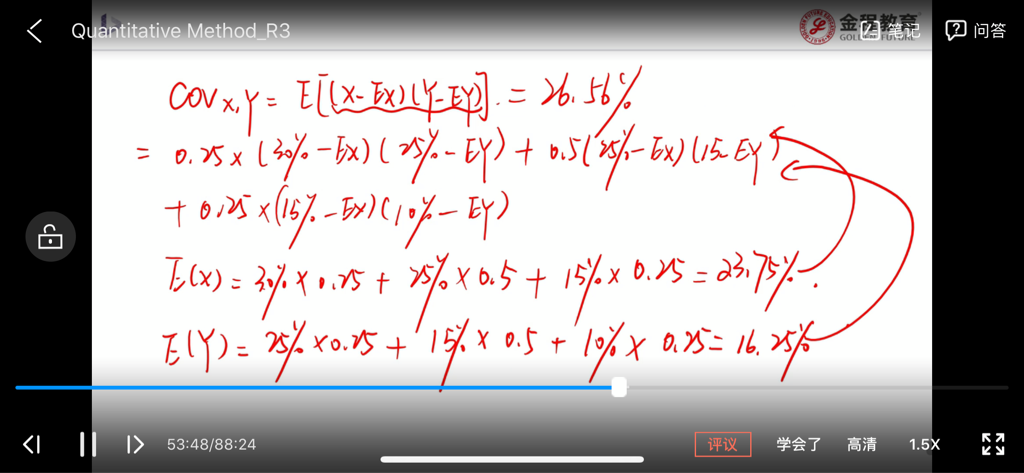 Quantitative Method_R3
金程教育
GOLDEN FUTURE
笔记
问答
COV X,Y = E[(X-EX)(Y-EY)] = 26.56%
= 0.25×(30%-EX)(25%-EY)+0.5(25%-EX)(15-EY)
+0.25×(15%-EX)(10%-EY)
E(X)=30%×0.25+25%×0.5+15%×0.25=23.75%.
E(Y)=25%×0.25+15%×0.5+10%×0.25=16.25%
53:48/88:24
评议
学会了
高清
1.5X